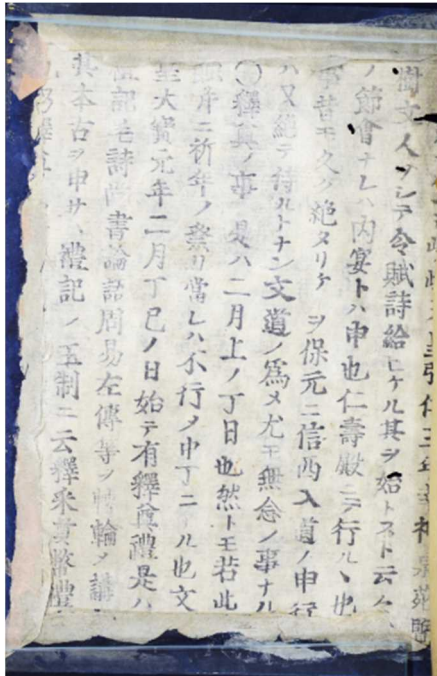 弘仁三年
閤文人ヲシテ令賦詩給ヒケル其ヲ始トスト云々
ノ節會ナレハ内宴トハ申也仁壽殿ニテ行ルヽ也
事昔モ久ク絶タリケヲ保元ニ信西入道ノ申
ハ又絶テ侍ルトナン文道ノ爲メ尤モ無念ノ事ナル
○釋奠ノ事是ハ二月上ノ丁日也然トモ若此
ニ祈年ノ祭リ當レハ不行メ中丁ニ ル也文
大寳元年二月丁巳ノ日始テ有釋奠禮是ハ
記毛詩尚書論語周易左傳等ヲ 輪 講
其本古ヲ申サハ禮記ノ王制ニ云釋采奠幣禮